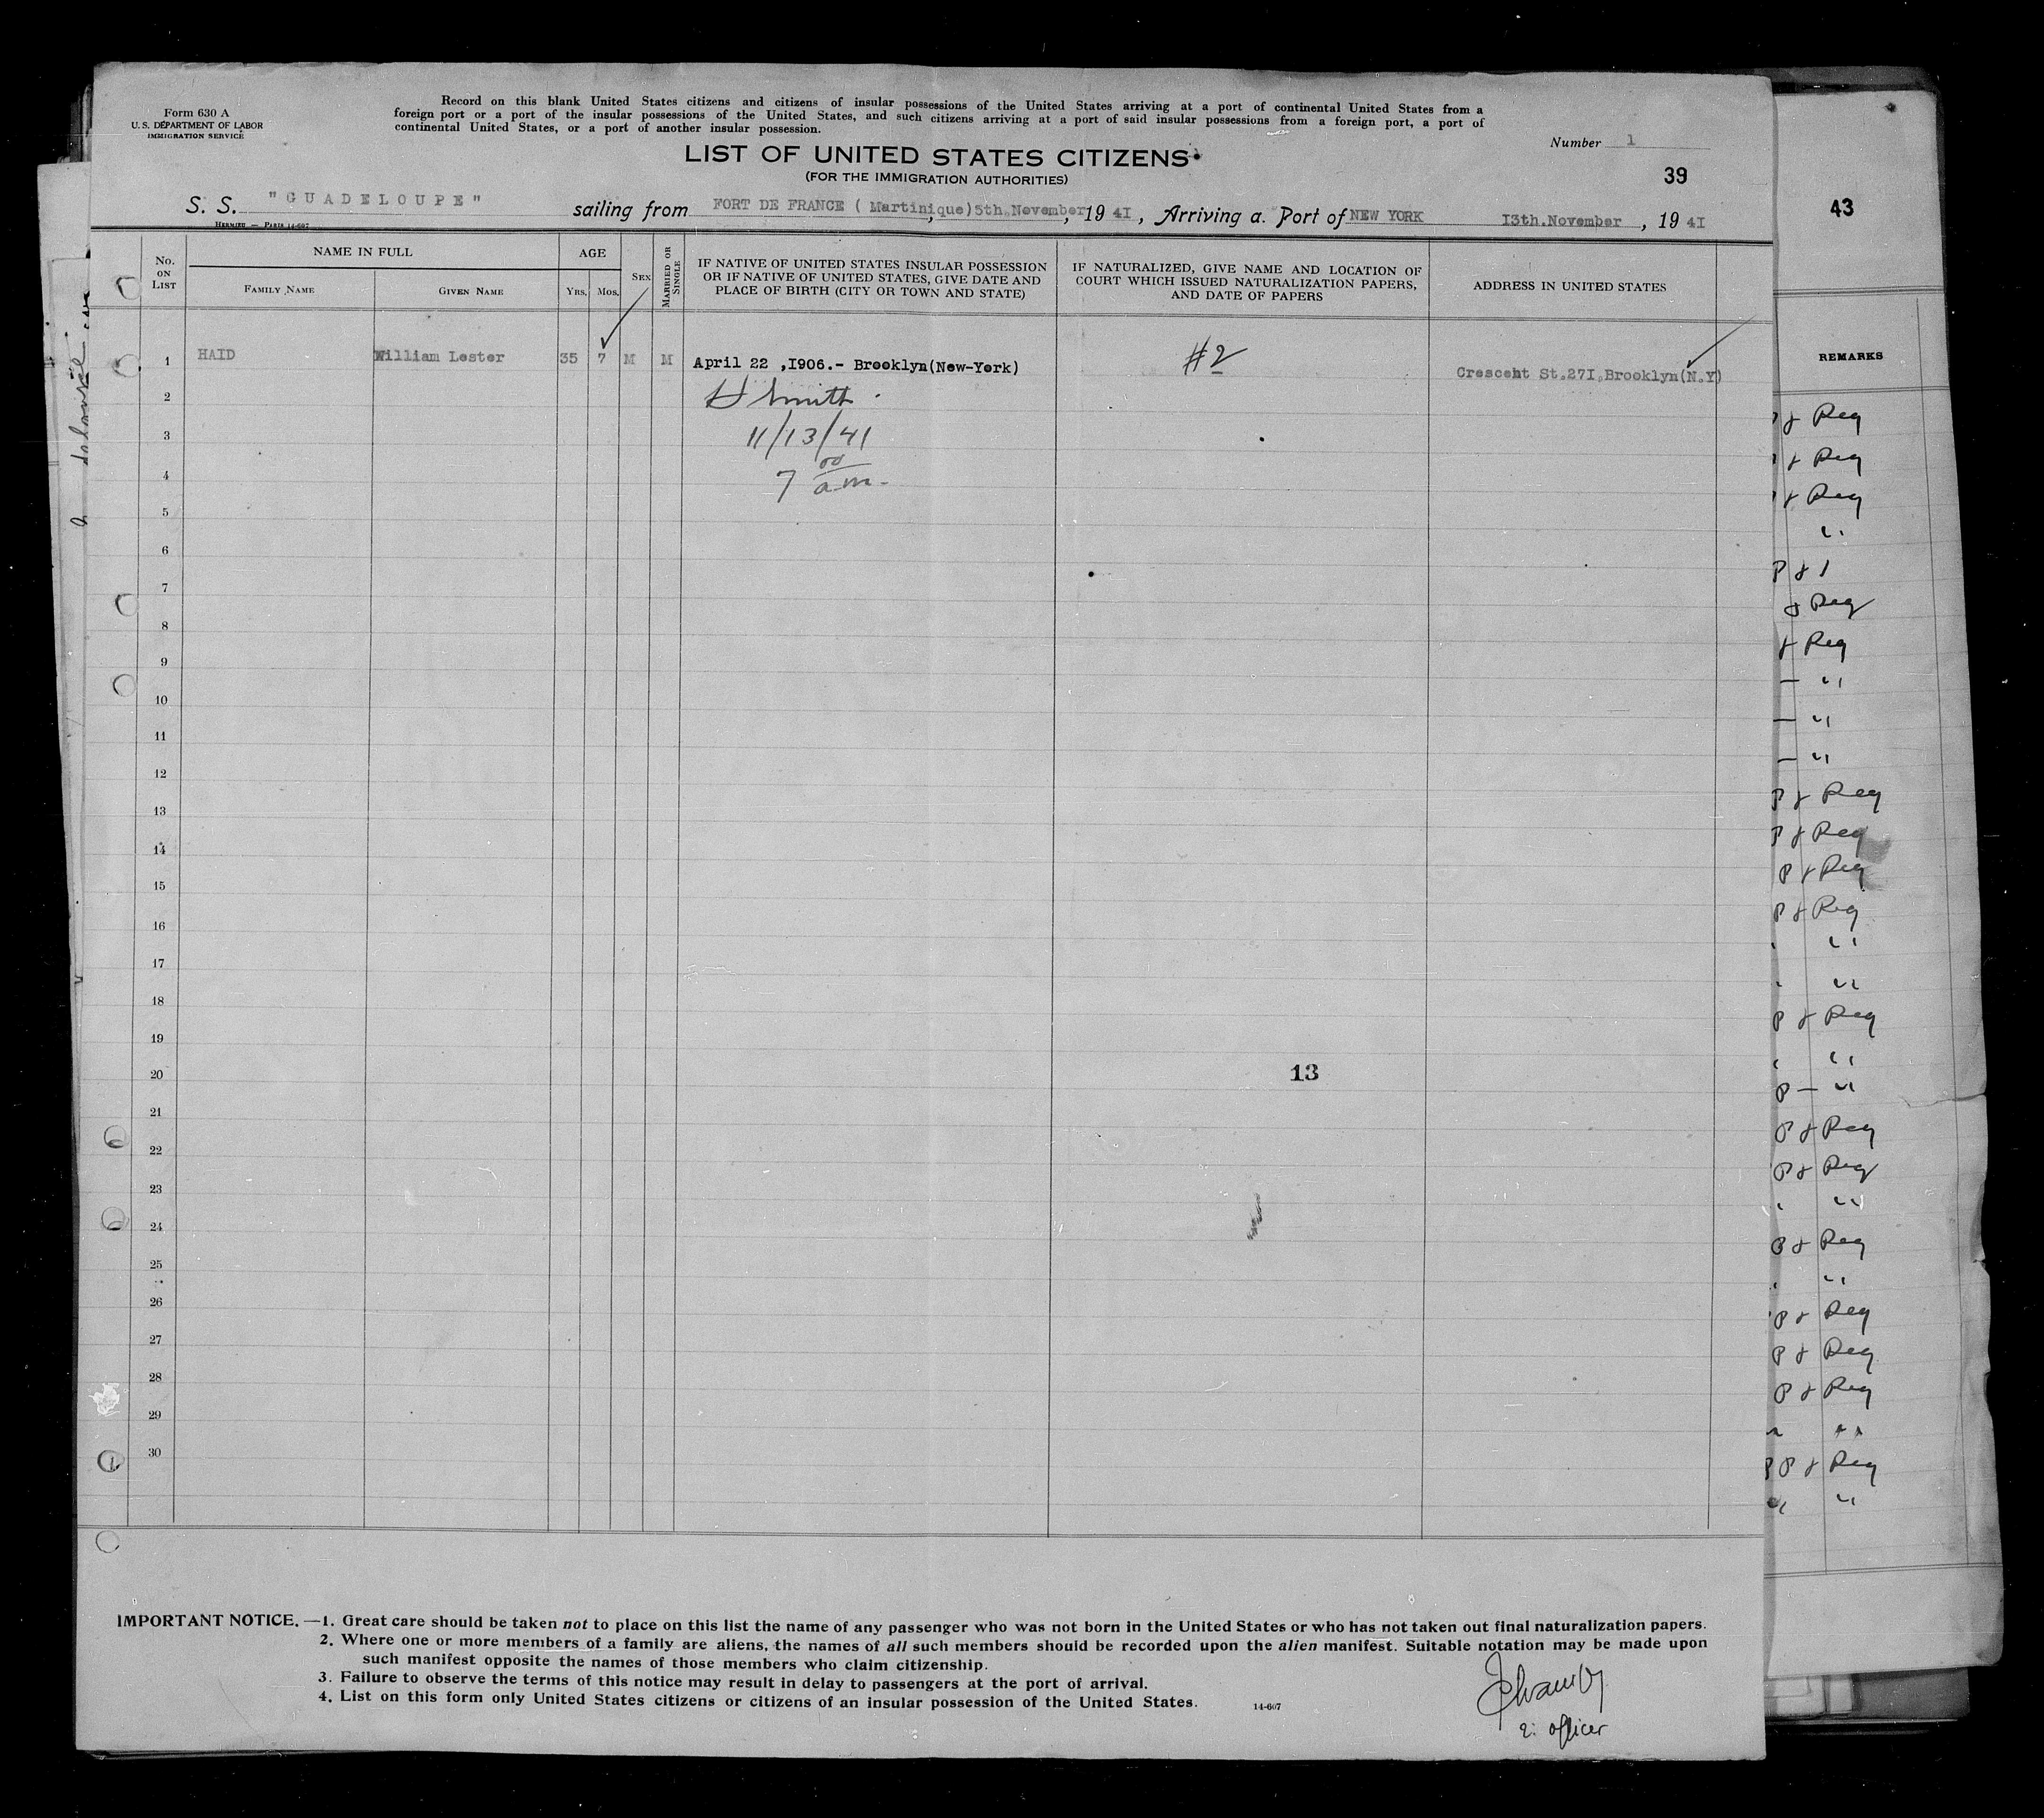 Form 630 A
U. S. DEPARTMENT OF LABOR
IMMIGRATION SERVICE
Record on this blank United States citizens and citizens of insular possessions of the United States arriving at a port of continental United States from a
foreign port or a port of the insular possessions of the United States, and such citizens arriving at a port of said insular possessions from a foreign port, a port of
continental United States, or a port of another insular possession.
LIST OF UNITED STATES CITIZENS
(FOR THE IMMIGRATION AUTHORITIES)
Number 1
39
S. S. "GUADELOUPE" sailing from FORT DE FRANCE ( Martinique) 5th.November, 19 4I, Arriving a. Port of NEW YORK I3th.November, 19 4I
HERMIEU — PARIS 14-607
No. ON LIST
NAME IN FULL
FAMILY NAME
GIVEN NAME
AGE
YRS.
MOS.
SEX
MARRIED OR SINGLE
IF NATIVE OF UNITED STATES INSULAR POSSESSION
OR IF NATIVE OF UNITED STATES, GIVE DATE AND
PLACE OF BIRTH (CITY OR TOWN AND STATE)
IF NATURALIZED, GIVE NAME AND LOCATION OF
COURT WHICH ISSUED NATURALIZATION PAPERS,
AND DATE OF PAPERS
ADDRESS IN UNITED STATES
1 HAID William Lester 35 7 M M April 22 ,I906.- Brooklyn(New-York) #2 Crescent St.27I.Brooklyn(N.Y)
2 H Smith
3 11/13/41
4 7 00 am-
5
6
7
8
9
10
11
12
13
14
15
16
17
18
19
20 13
21
22
23
24
25
26
27
28
29
30
IMPORTANT NOTICE. —1. Great care should be taken not to place on this list the name of any passenger who was not born in the United States or who has not taken out final naturalization papers.
2. Where one or more members of a family are aliens, the names of all such members should be recorded upon the alien manifest. Suitable notation may be made upon
such manifest opposite the names of those members who claim citizenship.
3. Failure to observe the terms of this notice may result in delay to passengers at the port of arrival.
4. List on this form only United States citizens or citizens of an insular possession of the United States.
14-607
officer
43
REMARKS
Reg
Reg
Reg
P & 1
Reg
Reg
P & Reg
P & Reg
P & Reg
P & Reg
P & Reg
P —
P & Reg
P & Reg
P & Reg
P & Reg
P & Reg
P & Reg
P & Reg